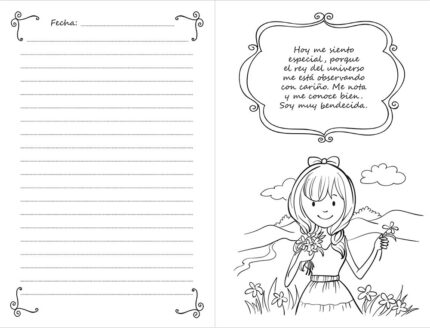 Fecha:
Hoy me siento
especial, porque
el rey del universo
me está observando
con cariño. Me nota
y me conoce bien.
Soy muy bendecida.